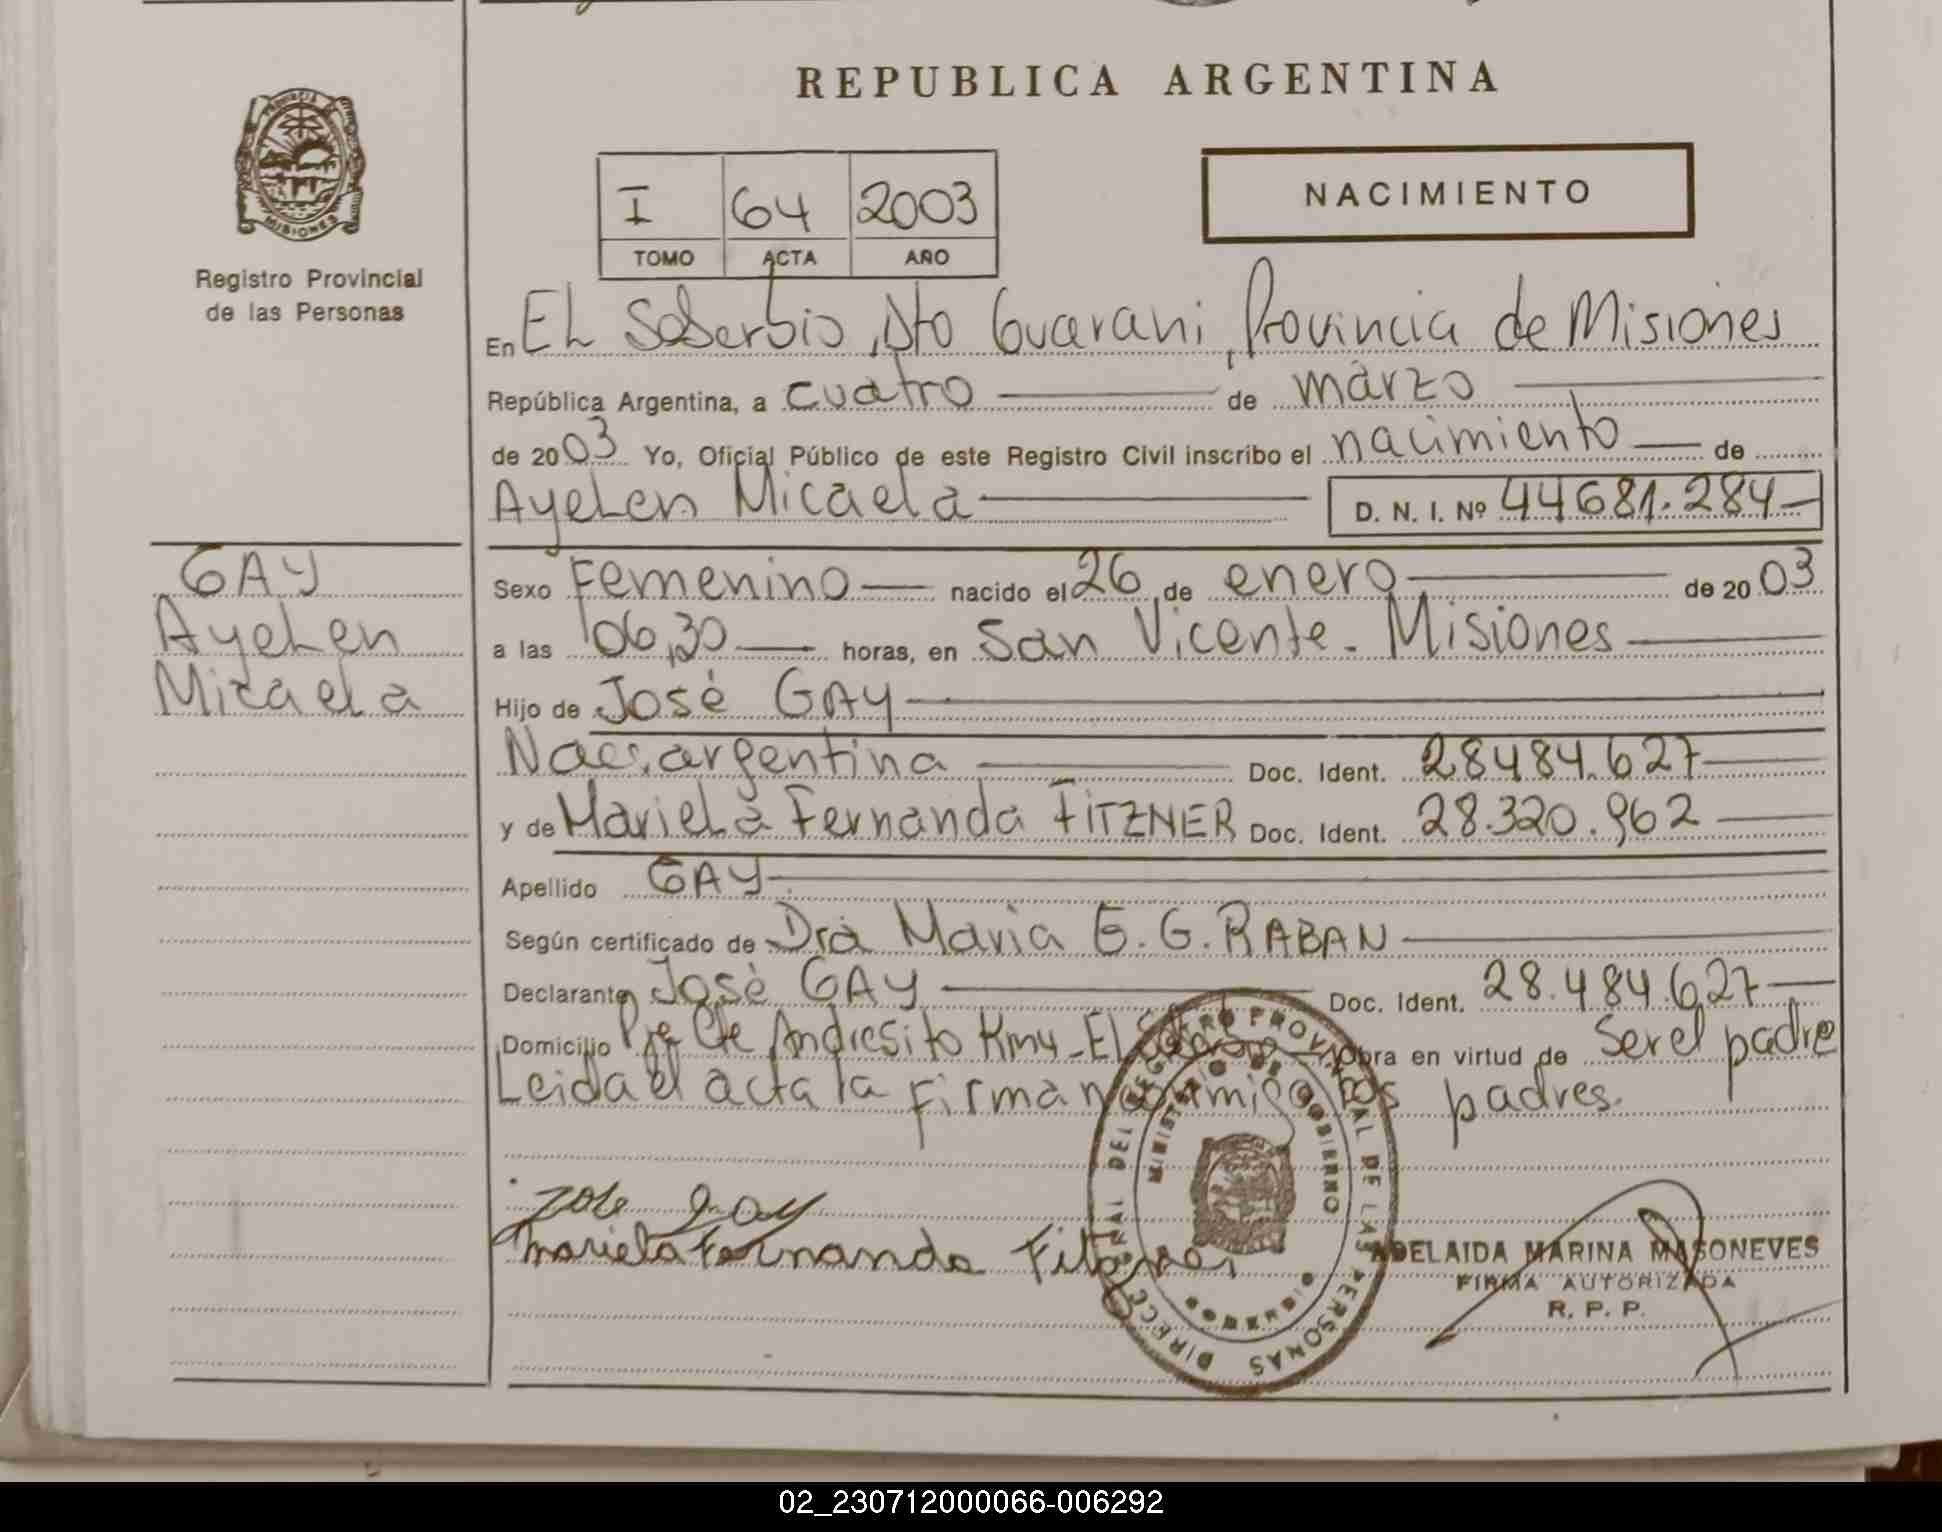 REPUBLICA ARGENTINA
PROVINCIA
MISIONES
Registro Provincial
de las Personas
I 64 2003
TOMO ACTA AÑO
NACIMIENTO
En EL Soberbio, Dto Guarani, Provincia de Misiones
República Argentina, a cuatro de marzo
de 2003 Yo, Oficial Público de este Registro Civil inscribo el nacimiento de
Ayelen Micaela D. N. I. Nº 44681.284
GAY
Ayelen
Micaela
Sexo Femenino nacido el 26 de enero de 2003
a las 06,30 horas, en San Vicente. Misiones
Hijo de José GAY
Nac. argentina Doc. Ident. 28484.627
y de Mariela Fernanda FITZNER Doc. Ident. 28.320.962
Apellido GAY
Según certificado de Dra Maria E. G. RABAN
Declarante José GAY Doc. Ident. 28.484.627
Domicilio Pje Cte Andresito Km4 - El Obra en virtud de Ser el padre
Leida el acta la firman conmigo los padres.
Jose Gay
Mariela Fernanda Fitzner
DIRECC GRAL DEL REGISTRO PROVINCIAL DE LAS PERSONAS
MINISTERIO DE GOBIERNO
MISIONES
ADELAIDA MARINA MASONEVES
FIRMA AUTORIZADA
R. P. P.
02_230712000066-006292